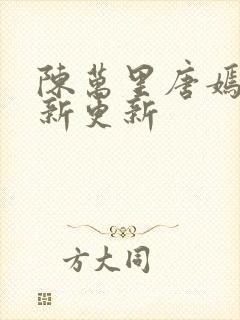 陳萬里唐嫣
新更新
方大同